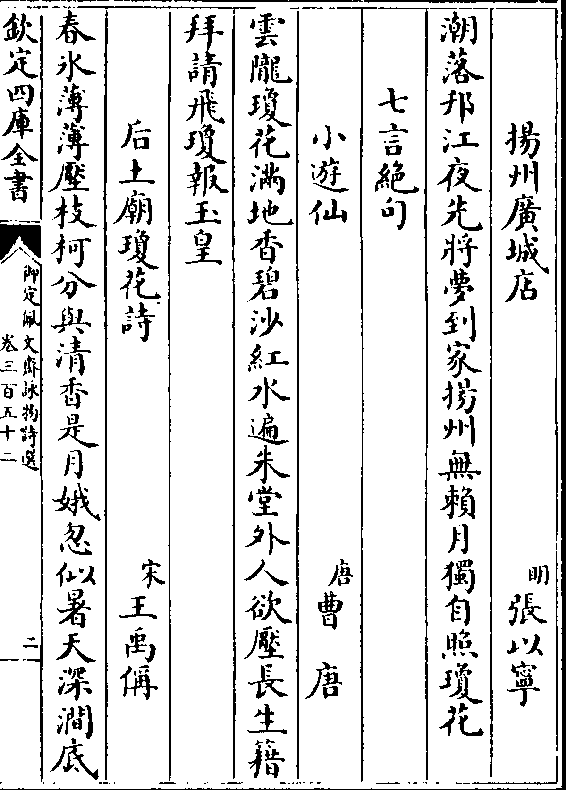 揚州廣城店 明 張以寧
潮落邗江夜先將夢到家揚州無賴月獨自照瓊花
七言絕句
小遊仙 唐 曹唐
雲隴瓊花滿地香碧沙紅水遍朱堂外人欲壓長生籍
拜請飛瓊報玉皇
后土廟瓊花詩 宋 王禹偁
春氷薄薄壓枝柯分與清香是月娥忽似暑天深澗底
欽定四庫全書
御定佩文齋詠物詩選
卷三百五十二
二